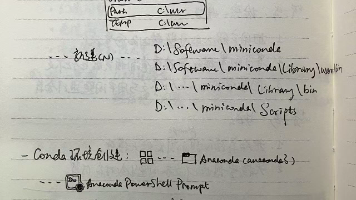 Path C:\User
Temp C:\User
--- 新建(N) D:\Software\miniconda
D:\Software\miniconda\Library\usr\bin
D:\...\miniconda\Library\bin
D:\...\miniconda\Scripts
- Conda 环境创建: --- Anaconda (anaconda3)
--- Anaconda PowerShell Prompt